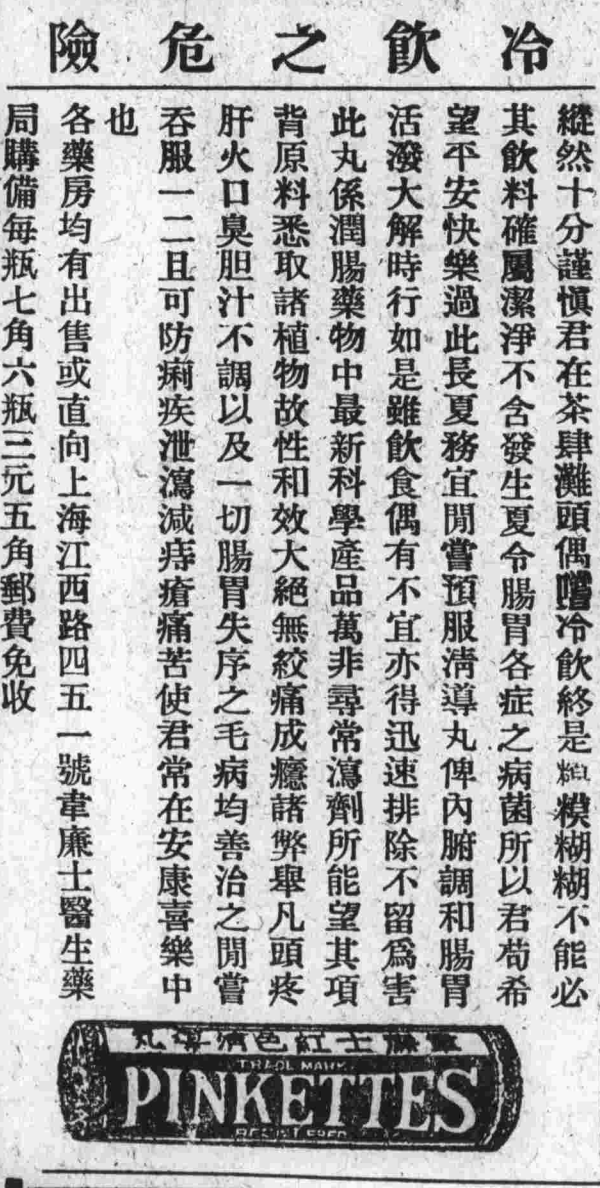 冷飲之危險
縱然十分謹愼君在茶肆灘頭偶嚐冷飲終是糢糊糊不能必
其飲料確屬潔淨不含發生夏令腸胃各症之病菌所以君苟希
望平安快樂過此長夏務宜閒嘗預服淸導丸俾內腑調和腸胃
活潑大解時行如是雖飲食偶有不宜亦得迅速排除不留爲害
此丸係潤腸藥物中最新科學產品萬非尋常瀉劑所能望其項
背原料悉取諸植物故性和效大絕無絞痛成癮諸弊舉凡頭疼
肝火口臭胆汁不調以及一切腸胃失序之毛病均善治之閒嘗
吞服一二且可防痢疾泄瀉減痔瘡痛苦使君常在安康喜樂中
也
各藥房均有出售或直向上海江西路四五一號韋廉士醫生藥
局購備每瓶七角六瓶三元五角郵費免收
韋廉士紅色淸導丸
TRADE MARK
PINKETTES